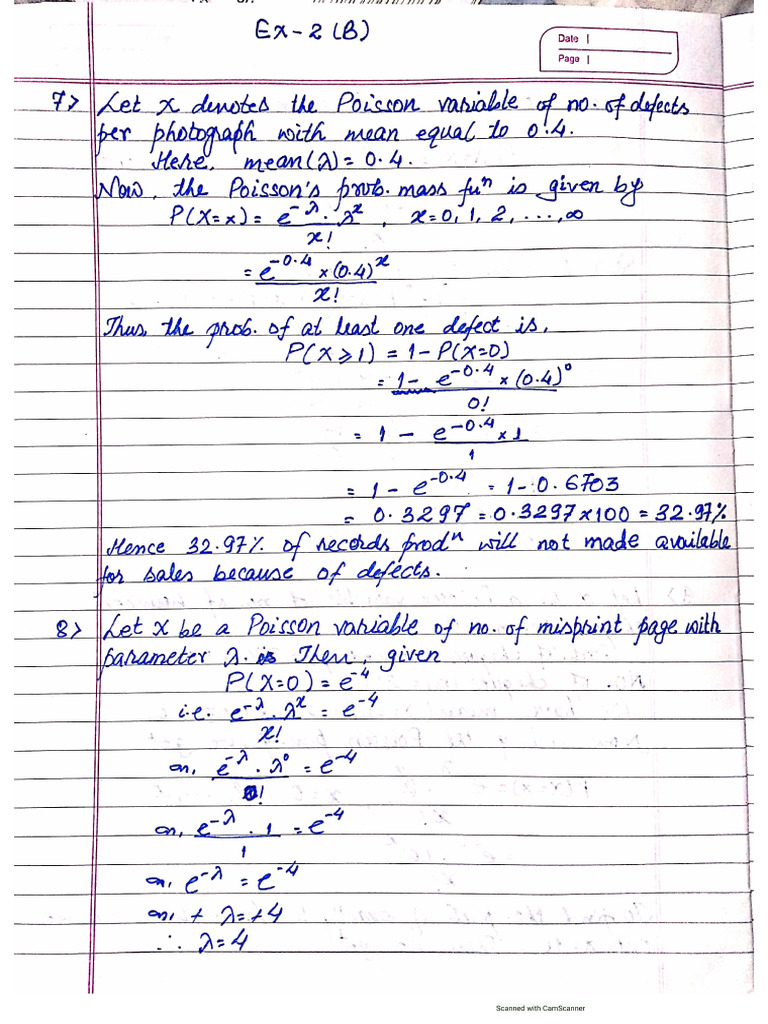 Ex-2 (B)
Date
Page
7> Let x denotes the Poisson variable of no. of defects
per photograph with mean equal to 0.4.
Here, mean(λ) = 0.4.
Now, the Poisson's prob. mass fuⁿ is given by
P(X=x) = e^-λ . λ^x / x! , x=0, 1, 2, ..., ∞
= e^-0.4 × (0.4)^x / x!
Thus, the prob. of at least one defect is,
P(X ⩾ 1) = 1 - P(X=0)
= 1 - e^-0.4 × (0.4)^0 / 0!
= 1 - e^-0.4 × 1 / 1
= 1 - e^-0.4 = 1 - 0.6703
= 0.3297 = 0.3297 × 100 = 32.97%
Hence 32.97% of records prodⁿ will not made available
for sales because of defects.
8> Let X be a Poisson variable of no. of misprint page with
parameter λ. Then, given
P(X=0) = e^-4
i.e. e^-λ . λ^x / x! = e^-4
or, e^-λ . λ^0 / 0! = e^-4
or, e^-λ . 1 / 1 = e^-4
or, e^-λ = e^-4
or, + λ = +4
∴ λ = 4
Scanned with CamScanner